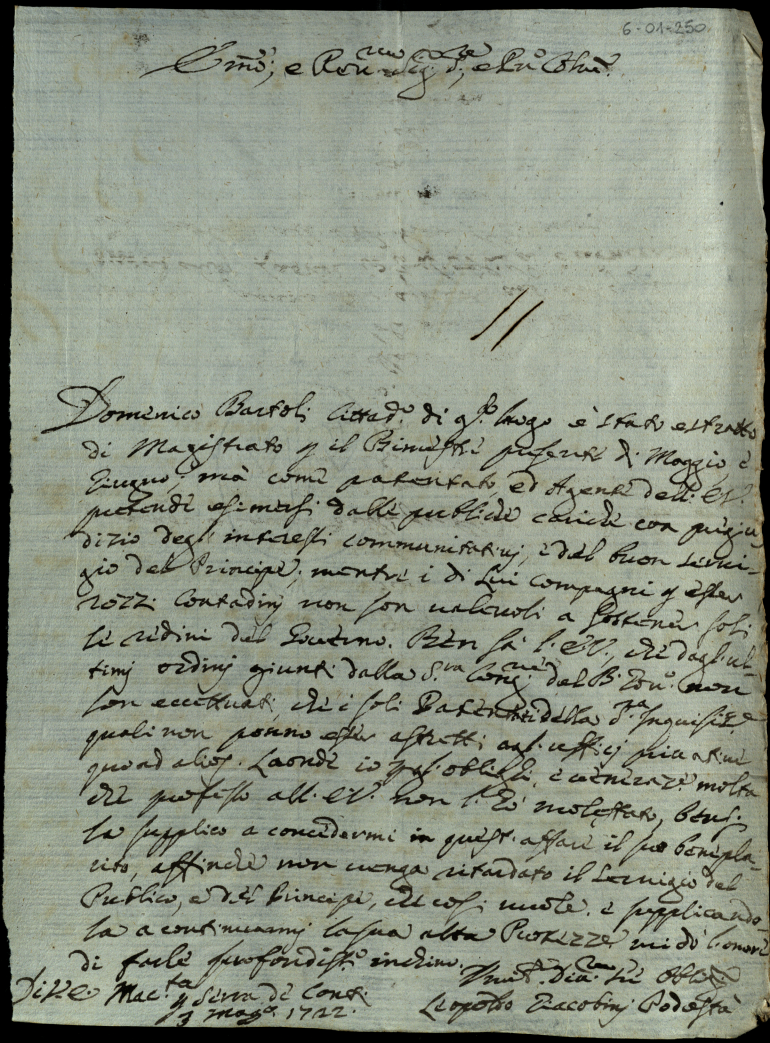 6-01-250
Domenico Bartoli Cittad.o di q.to luogo è stato estratto
di Magistrato p il Bimestre presente di Maggio, e
Giugno; mà come patentato ed Agente dell' EV.
pretende esimersi dalle publiche cariche con pregiu
dizio degl' interessi communitativj, e del buon servi-
gio del Principe; mentre i di Lui compagni p esser
rozzi Contadinj non son valevoli a sostener soli
le redini del Governo. Ben sà l' EV., che dagl' ul-
timj ordinj giunti dalla S.ra Cong.ne del B. Gov.o non
son eccettuati, che i soli Patentati della S.ta Inquisiz.e
quali non ponno esser astretti agl' ufficj privative
quoad alios. Laonde io p gl' obblighi, e veneraz.e molta
che professo all' EV. non l' hò molestato, bensi
la supplico a concedermi in quest' affare il suo benepla-
cito, affinche non venga ritardato il servigio del
Publico, e del Principe, che cosi vuole. e supplicando-
la a continuarmj la sua alta Protezze mi dò l' onore
di farle profondiss.o inchino.
Di V.E. Mac.ta
p Serra de Conti
3 Mag.o 1722.
Leopoldo Giacobinj Podestà